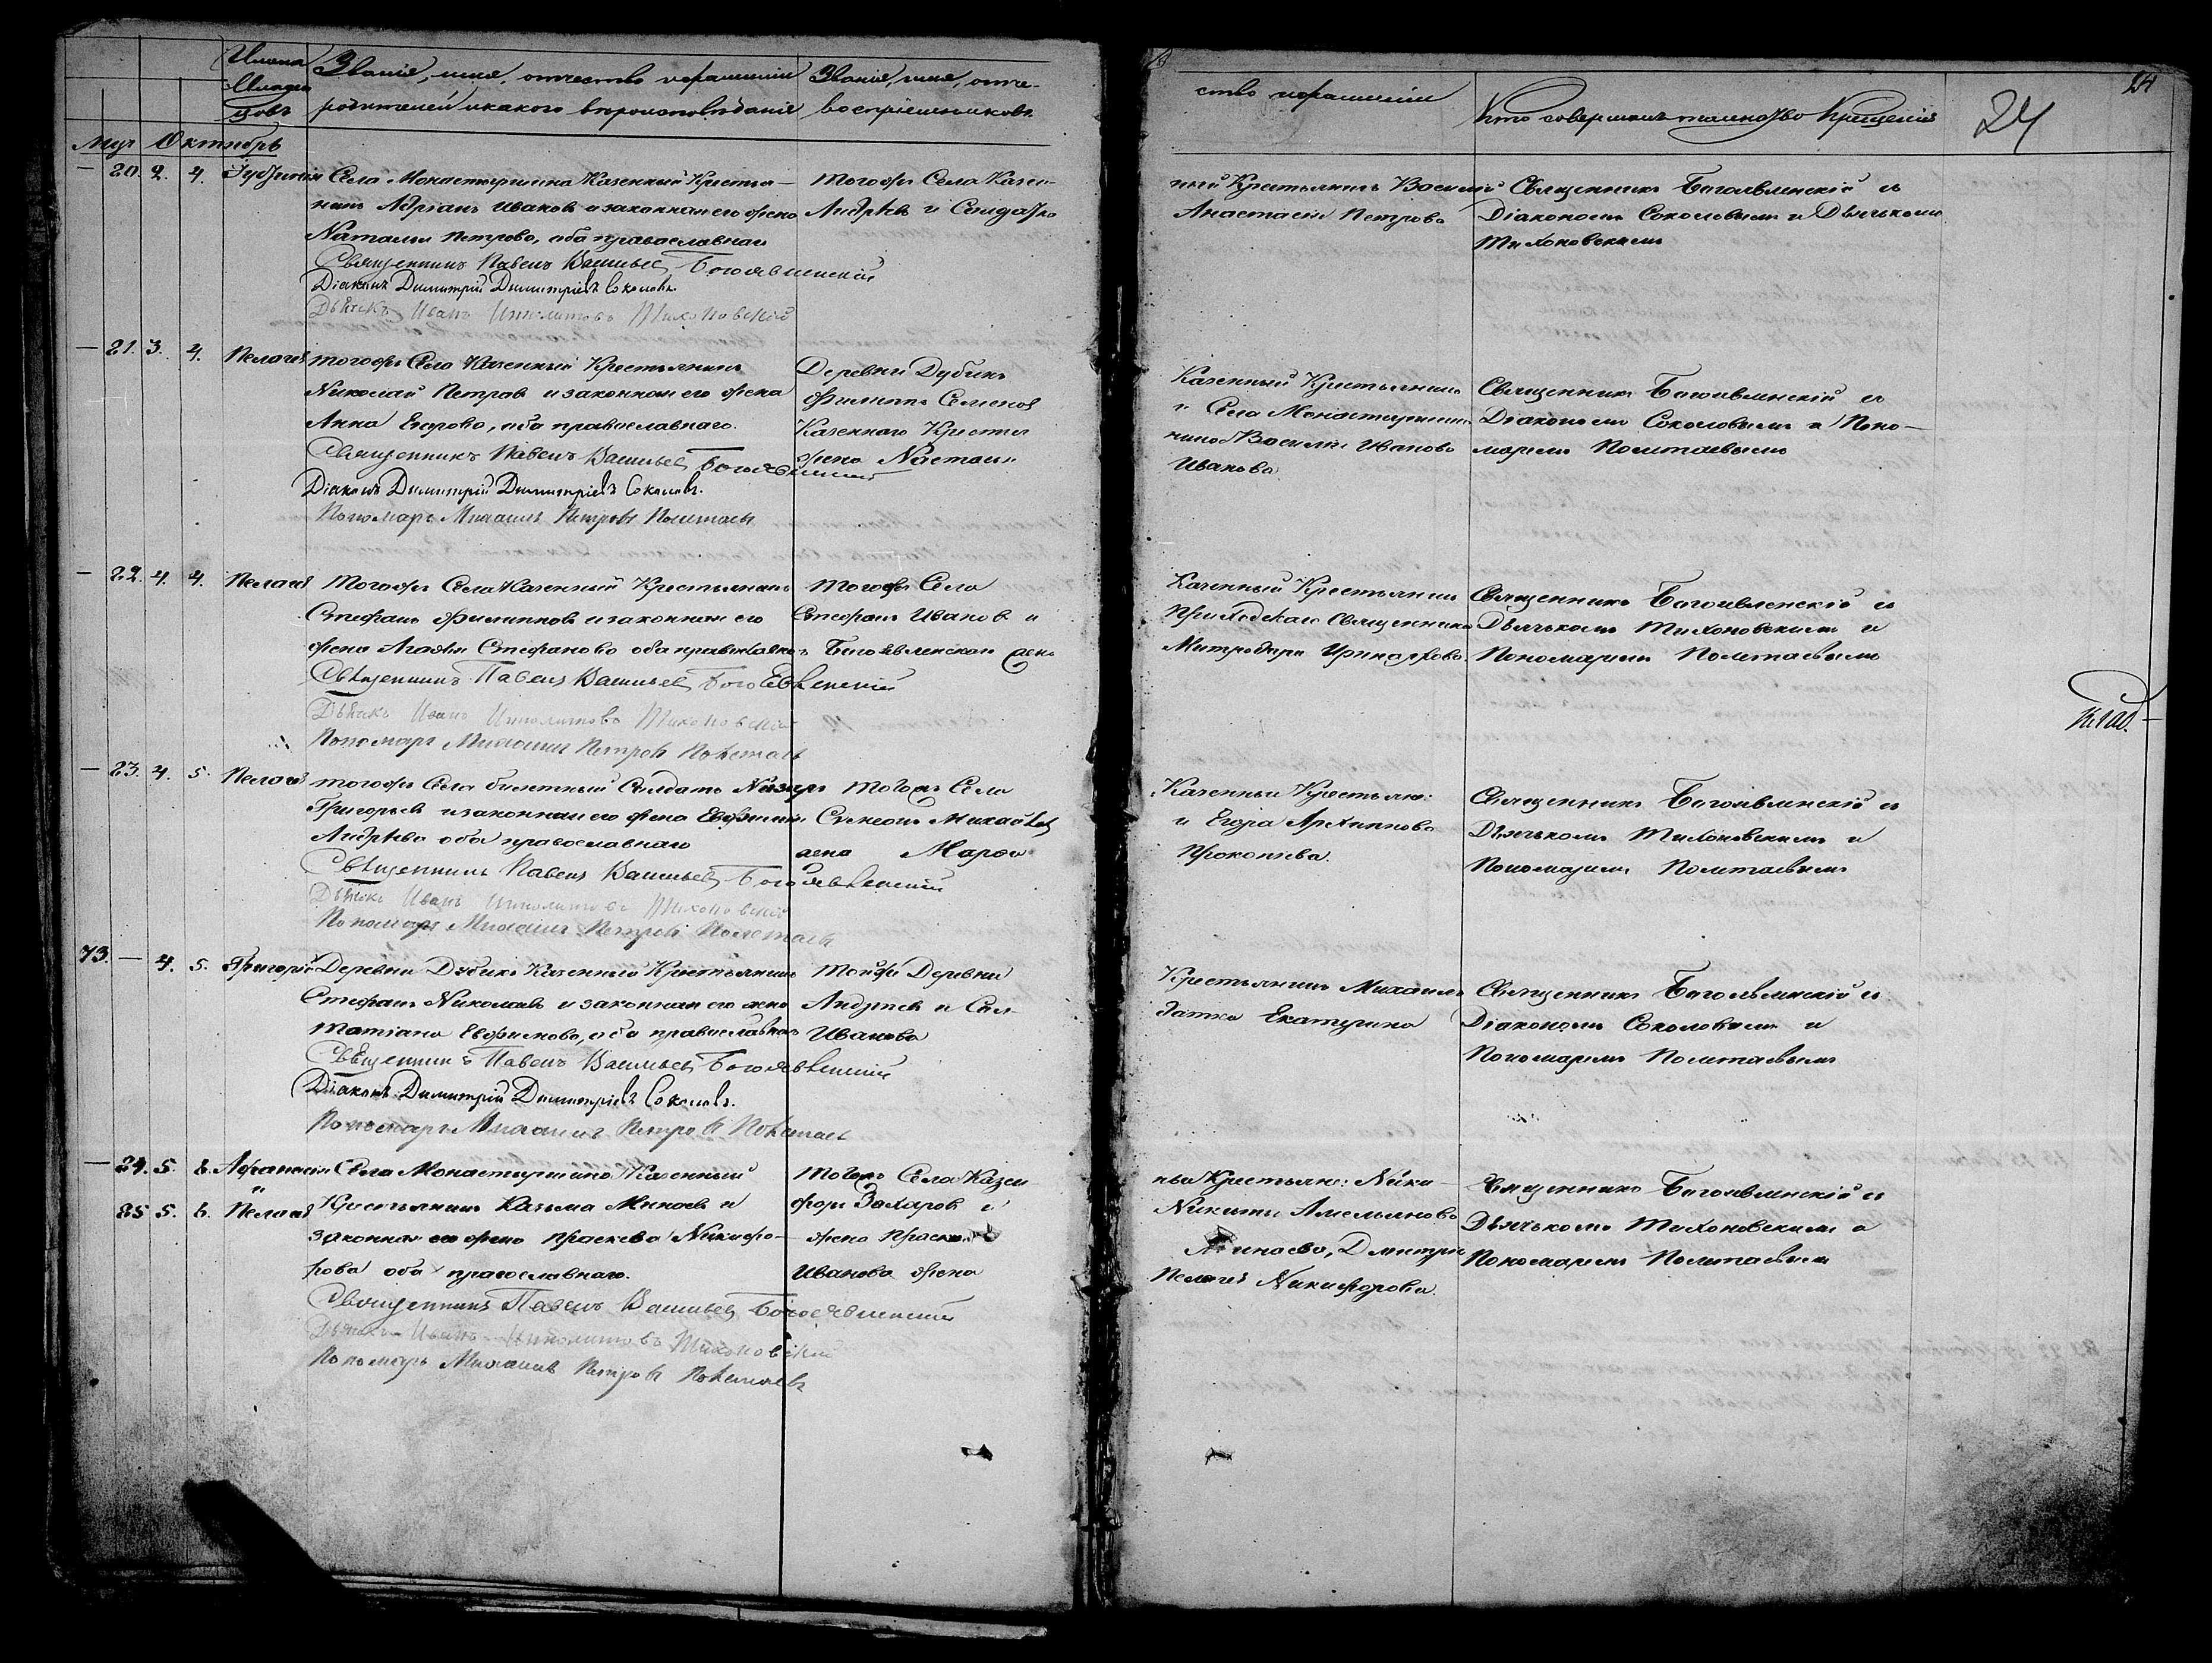 Имена
Младен
цовъ
Званіе, имя, отчество и фамиліи
родителей и какого вѣроисповѣданія
Званіе, имя, отче-
воспріемниковъ
Муж Октябрь
— 20. 2. 4. Іустинія Села Монастырщина Казенный Крестья-
нинъ Адріанъ Иванов и законная его жена
Наталья Петрова, оба православнаго
Священникъ Павелъ Васильев Богоявленскій
Діаконъ Димитрій Димитріевъ Соколовъ.
Дьячекъ Иванъ Ипполитовъ Тихоновскій
Тогожъ Села Казен-
Андрѣев и Солдатка
— 21. 3. 4. Пелагія Тогожъ Села Казенный Крестьянинъ
Николай Петров и законная его жена
Анна Егорова, оба православнаго.
Священникъ Павелъ Васильев Богоявленский
Діаконъ Димитрій Димитріевъ Соколовъ.
Пономарь Михаилъ Петровъ Полетаевъ
Деревни Дубикъ
Филиппъ Семенов
Казеннаго Крестья
жена Настасья
— 22. 4. 4. Пелагія Тогожъ Села Казенный Крестьянинъ
Стефанъ Филиппов и законная его
жена Агафья Стефанова оба православнаго
Священникъ Павелъ Васильев Богоявленский
Дьячекъ Иванъ Ипполитовъ Тихоновский
Пономарь Михаилъ Петров Полетаев
Тогожъ Села
Стефанъ Иванов и
Богоявленскаго жена
— 23. 4. 5. Пелагія Тогожъ Села билетный Солдатъ Назаръ
Григорьев и законная его жена Евфимия
Андрѣева оба православнаго
Священникъ Павелъ Васильев Богоявленский
Дьячекъ Иванъ Ипполитовъ Тихоновский
Пономарь Михаилъ Петров Полетаев
Тогожъ Села
Симеонъ Михайлов
жена Марфа
73. — 4. 5. Григорій Деревни Дубика Казенный Крестьянинъ
Стефанъ Николаевъ и законная его жена
Татіана Евфимова, оба православнаго
Священникъ Павелъ Васильев Богоявленский
Діаконъ Димитрій Димитріевъ Соколовъ.
Пономарь Михаилъ Петров Полетаев
Тойже Деревни
Андреев и Сол-
Иванова
— 24. 5. 6. Афанасія Села Монастырщина Казенный
и
25 5. 6. Пелагія Крестьянинъ Казьма Минаев и
законная его жена Праскева Никифо-
рова оба православнаго.
Священникъ Павелъ Васильев Богоявленский
Дьячекъ Иванъ Ипполитовъ Тихоновский
Пономарь Михаилъ Петров Полетаевъ
Тогожъ Села Казен
форъ Захаров и
жена Праско
Иванова жена
ство и фамиліи
Кто совершалъ таинство Крещенія
24
24
ный Крестьянинъ Василий
Анастасія Петрова
Священникъ Богоявленскій съ
Діакономъ Соколовымъ и Дьячькомъ
Тихоновскимъ
Казенный Крестьянинъ
и Села Монастырщи
нина Василія Иванова
Иванова.
Священникъ Богоявленскій съ
Діакономъ Соколовымъ и Поно-
маремъ Полетаевымъ
Казенный Крестьянин
Приходскаго Священника
Митродора Иринархова.
Священникъ Богоявленскій съ
Дьячькомъ Тихоновскимъ и
Пономаремъ Полетаевымъ
Казенный Крестьян:
и Егора Архиппова
Прокопьева.
Священникъ Богоявленскій съ
Дьячькомъ Тихоновскимъ и
Пономаремъ Полетаевымъ
Крестьянинъ Михаилъ
датка Екатерина
Священникъ Богоявленскій съ
Діакономъ Соколовымъ и
Пономаремъ Полетаевымъ
ный Крестьян: Ники-
Никиты Амельянова
Минаева, Дмитрій
Пелагія Никифорова.
Священникъ Богоявленскій съ
Дьячькомъ Тихоновскимъ и
Пономаремъ Полетаевымъ